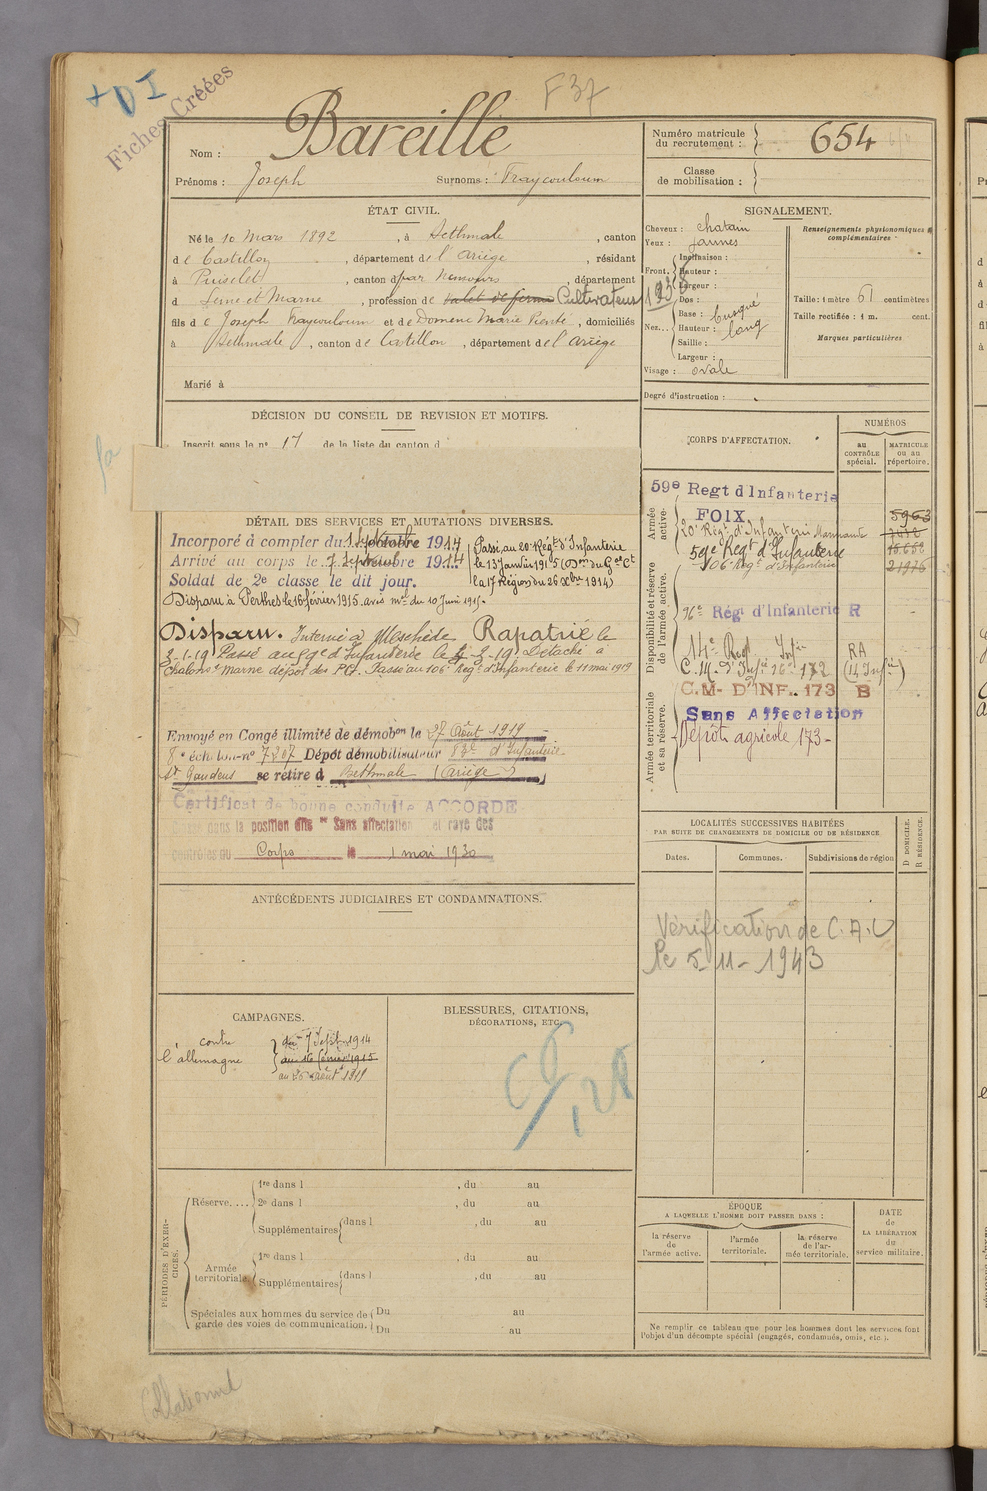 + D I
Fiches Créées
F 37
Nom : Bareille
Prénoms : Joseph Surnoms :
Numéro matricule du recrutement : 654
Classe de mobilisation :
ÉTAT CIVIL.
Né le 10 Mars 1892, à Bethmale, canton
de Castillon, département de l'Ariège, résidant
à Puiselet, canton d par Nemours, département
d Seine et Marne, profession de valet de ferme Cultivateur
fils de Joseph et de Domenc Marie, domiciliés
à Bethmale, canton de Castillon, département de l'Ariège
Marié à
SIGNALEMENT.
Cheveux : chatain
Yeux : jaunes
Front. Inclinaison :
Hauteur :
Largeur :
Nez... Dos :
Base : busqué
Hauteur : long
Saillie :
Largeur :
Visage : ovale
Renseignements physionomiques complémentaires
Taille : 1 mètre 61 centimètres
Taille rectifiée : 1 m. cent.
Marques particulières
Degré d'instruction :
DÉCISION DU CONSEIL DE REVISION ET MOTIFS.
Inscrit sous le n° 17 de le liste du canton d
CORPS D'AFFECTATION.
NUMÉROS
au CONTRÔLE spécial.
MATRICULE ou au répertoire.
Armée active.
59e Regt d'Infanterie
FOIX
20e Régt d'Infanterie
59e Regt d'Infanterie
106e Régt d'Infanterie
5963
21976
Disponibilité et réserve de l'armée active.
Régt d'Infanterie R
14e Regt Infie RA
C.M. d'Infie 16e 172 (14 Infie)
C.M- D'INF. 173 B
Sans Affectation
Armée territoriale et sa réserve.
Dépôt agricole 173-
DÉTAIL DES SERVICES ET MUTATIONS DIVERSES.
Incorporé à compter du 1 Septembre 1914
Arrivé au corps le 7 Septembre 1914
Soldat de 2e classe le dit jour.
Passé au 20e Régt d'Infanterie
le 13 Janvier 1915 (Don du Gal Ct
la 17 Région du 26 Xbre 1914)
Disparu à Perthes le 16 février 1915. avis ml du 10 Juin 1915.
Disparu. Interné à Meschede Rapatrié le
3-1-19 Passé au 59e d'Infanterie le 4-3-19 Détaché à
Chalons s/ Marne dépôt des P.G. Passé au 106e Régt d'Infanterie le 11 mai 1919
Envoyé en Congé illimité de démobon le 27 Août 1919
8e échelon n° 7207 Dépôt démobilisateur 83e d'Infanterie
St Gaudens se retire à Bethmale (Ariège)
Certificat de bonne conduite ACCORDÉ
Classé dans la position dite "Sans affectation" et rayé des
contrôles du Corps le 1 mai 1930
LOCALITÉS SUCCESSIVES HABITÉES
PAR SUITE DE CHANGEMENTS DE DOMICILE OU DE RÉSIDENCE.
Dates. Communes. Subdivisions de région D DOMICILE. R RÉSIDENCE.
Vérification de C.A.U
le 5-11-1943
ANTÉCÉDENTS JUDICIAIRES ET CONDAMNATIONS.
CAMPAGNES.
contre l'allemagne
du 7 Sept. 1914
au 16 février 1915
au 26 août 1919
BLESSURES, CITATIONS,
DÉCORATIONS, ETC.
PÉRIODES D'EXERCICES.
Réserve....
1re dans l , du au
2e dans l , du au
Supplémentaires dans l , du au
Armée territoriale.
1re dans l , du au
Supplémentaires dans l , du au
Spéciales aux hommes du service de garde des voies de communication.
Du au
Du au
ÉPOQUE
A LAQUELLE L'HOMME DOIT PASSER DANS :
la réserve de l'armée active.
l'armée territoriale.
la réserve de l'armée territoriale.
DATE de LA LIBÉRATION du service militaire.
Ne remplir ce tableau que pour les hommes dont les services font
l'objet d'un décompte spécial (engagés, condamnés, omis, etc.).
Collationné